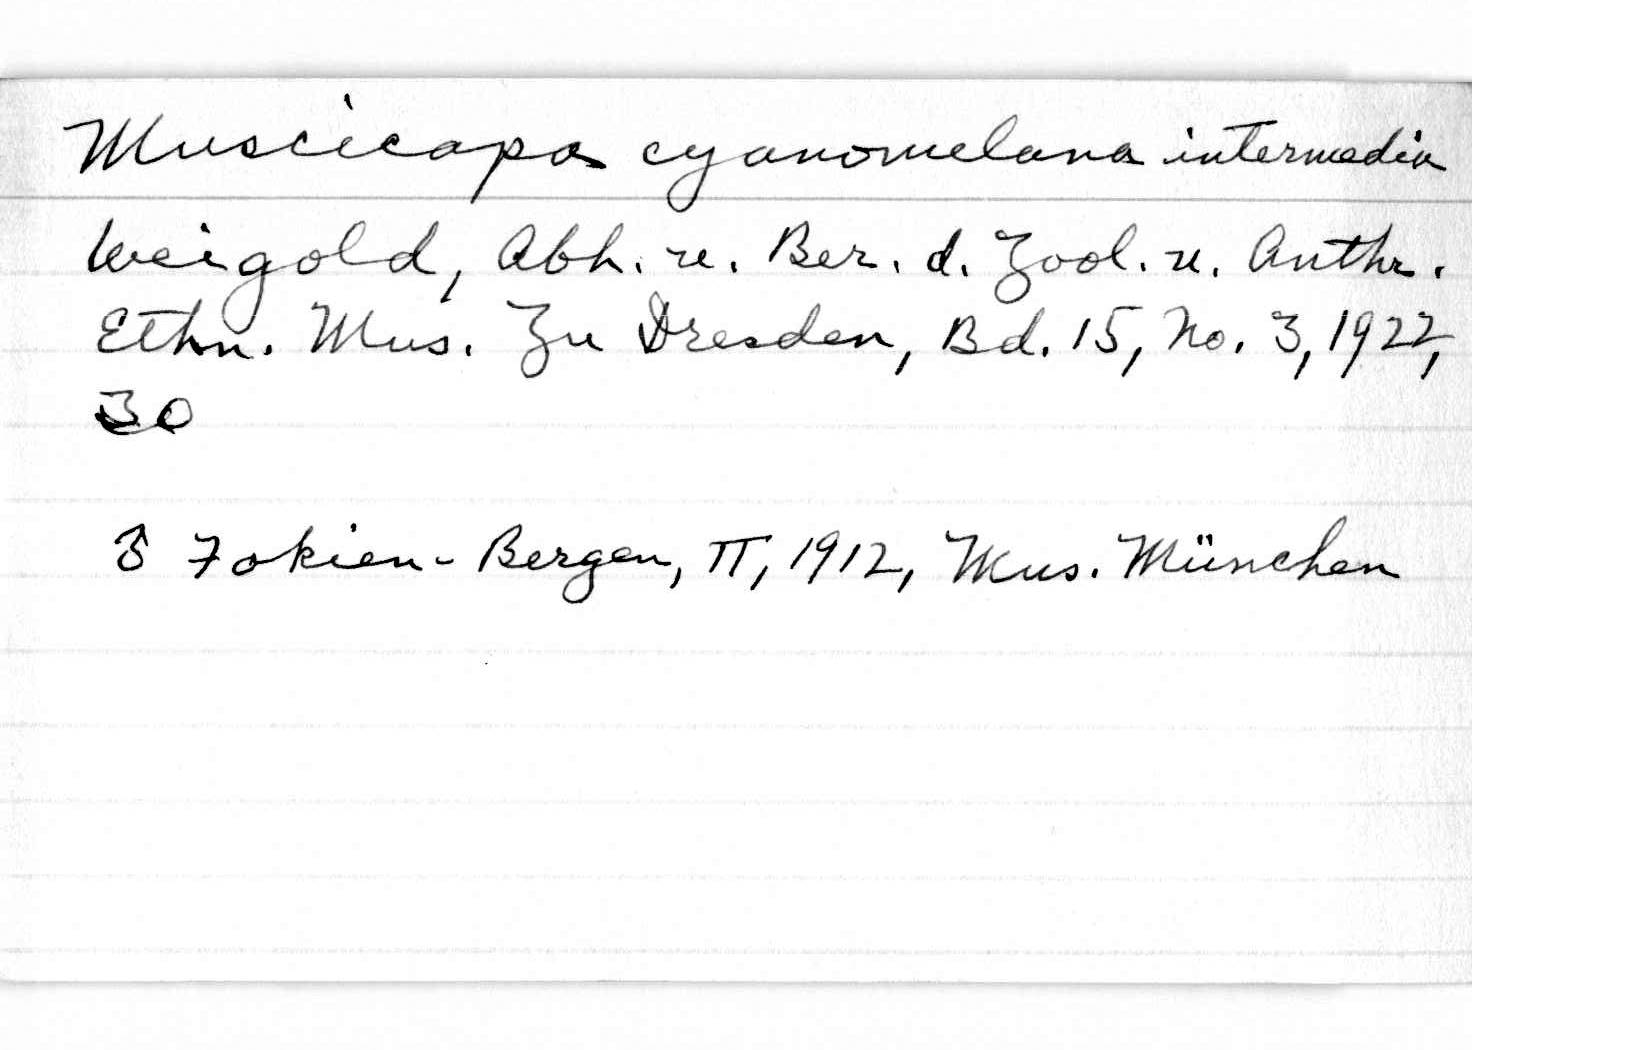 Muscicapa cyanomelana intermedia
Weigold, Abh. u. Ber. d. Zool. u. Anthr.
Ethn. Mus. Zu Dresden, Bd. 15, No. 3, 1922,
30
♂ Fokien-Bergen, II, 1912, Mus. München